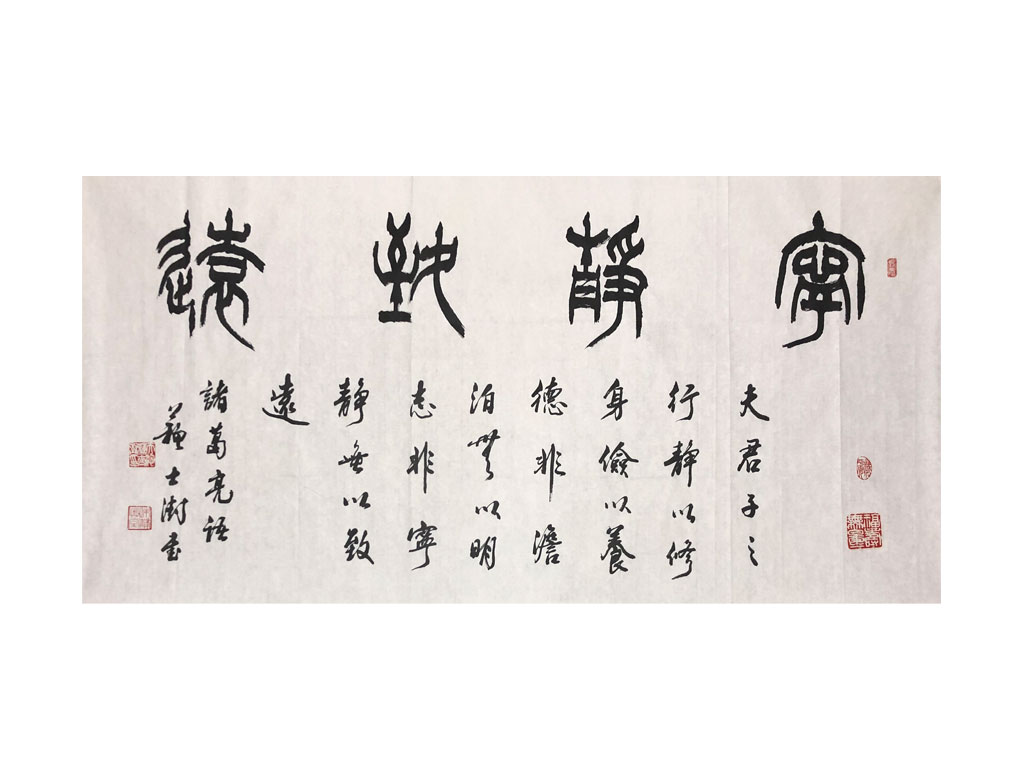 寧靜致遠
夫君子之
行靜以修
身儉以養
德非澹
泊無以明
志非寧
靜無以致
遠
諸葛亮語
蘇士澍書